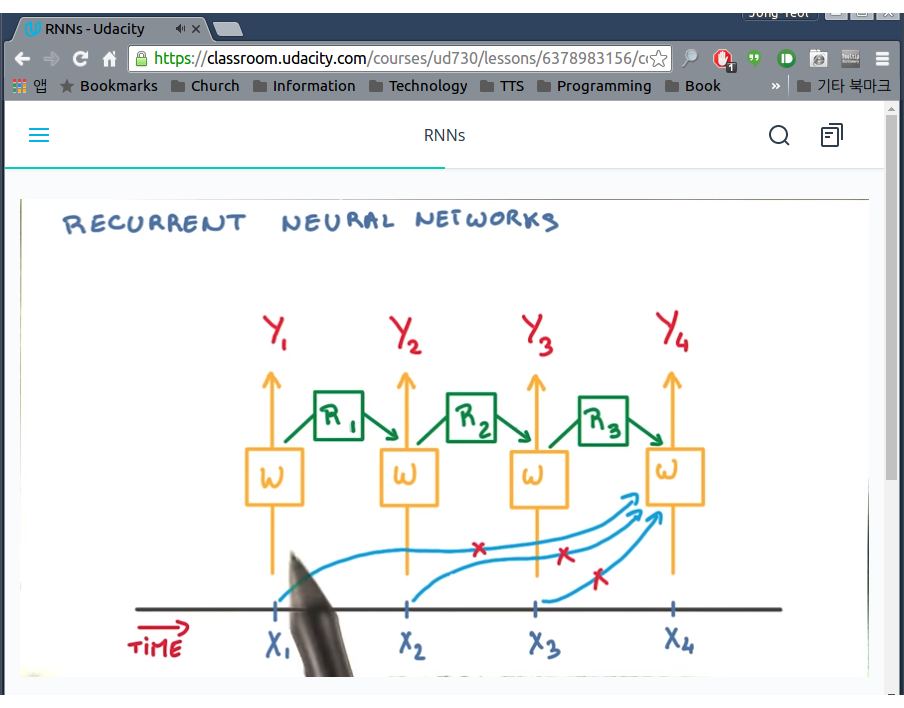 Jong Yeol
RNNs - Udacity
https://classroom.udacity.com/courses/ud730/lessons/6378983156/c
앱 Bookmarks Church Information Technology TTS Programming Book » 기타 북마크
RNNs
RECURRENT NEURAL NETWORKS
Y1 Y2 Y3 Y4
R1 R2 R3
W W W W
TIME X1 X2 X3 X4